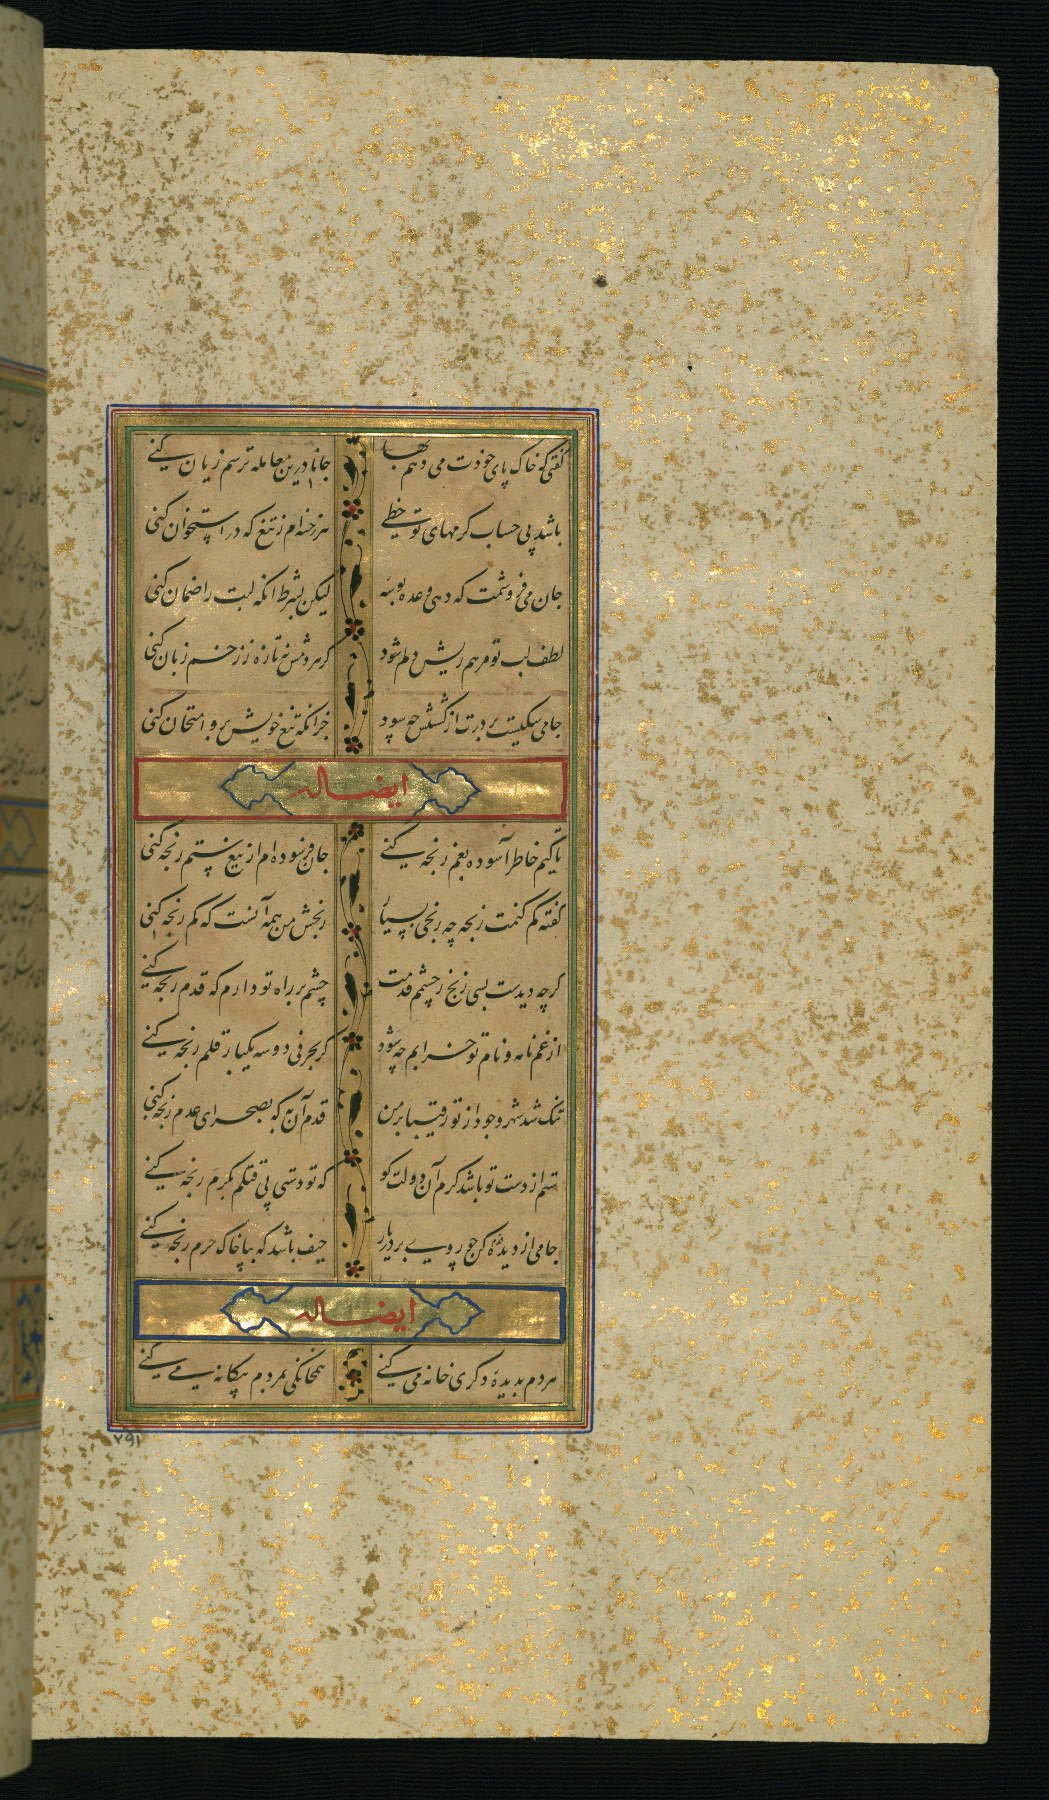 گفتی که خاک پای خودت می دهم بها جانا درین معامله ترسم زیان کنی
باشد پی حساب کرمهای تو خطی هر زخنه ام ز تیغ که در استخوان کنی
جان می فروشمت که دهی وعده بوسه لیکن بشرط آنکه لبت را ضمان کنی
لطف لب تو مرهم ریش دلم شود کر هر دمش تازه ز زخم زبان کنی
جامی سکیست بر درت از کشتنش چه سود جز آنکه تیغ خویش برو امتحان کنی
ایضا له
تا کیم خاطر آسوده بغم رنجه کنی جان فرسوده ام از تیغ ستم رنجه کنی
گفته کم کنمت رنجه چه رنجی بسیار رنجش من همه آنست که کم رنجه کنی
کرچه دیدست بسی رنج ز چشمم قدمت چشم بر راه تو دارم که قدم رنجه کنی
از غم نامه و نام تو خرابم چه شود کر بحرفی دو سه یکبار قلم رنجه کنی
تنک شد شهر وجود از تو رقیبا بر من قدم آن به که بصحرای عدم رنجه کنی
ستم از دست تو باشد کرم آن دولت کو که تو دستی پی قتلم بکرم رنجه کنی
جامی از دیده کن جو روی بر در یار حیف باشد که بپا خاک حرم رنجه کنی
ایضا له
مردم بدیده دکری خانه می کنی همخانکی بمردم بیکانه می کنی
۲۹۱